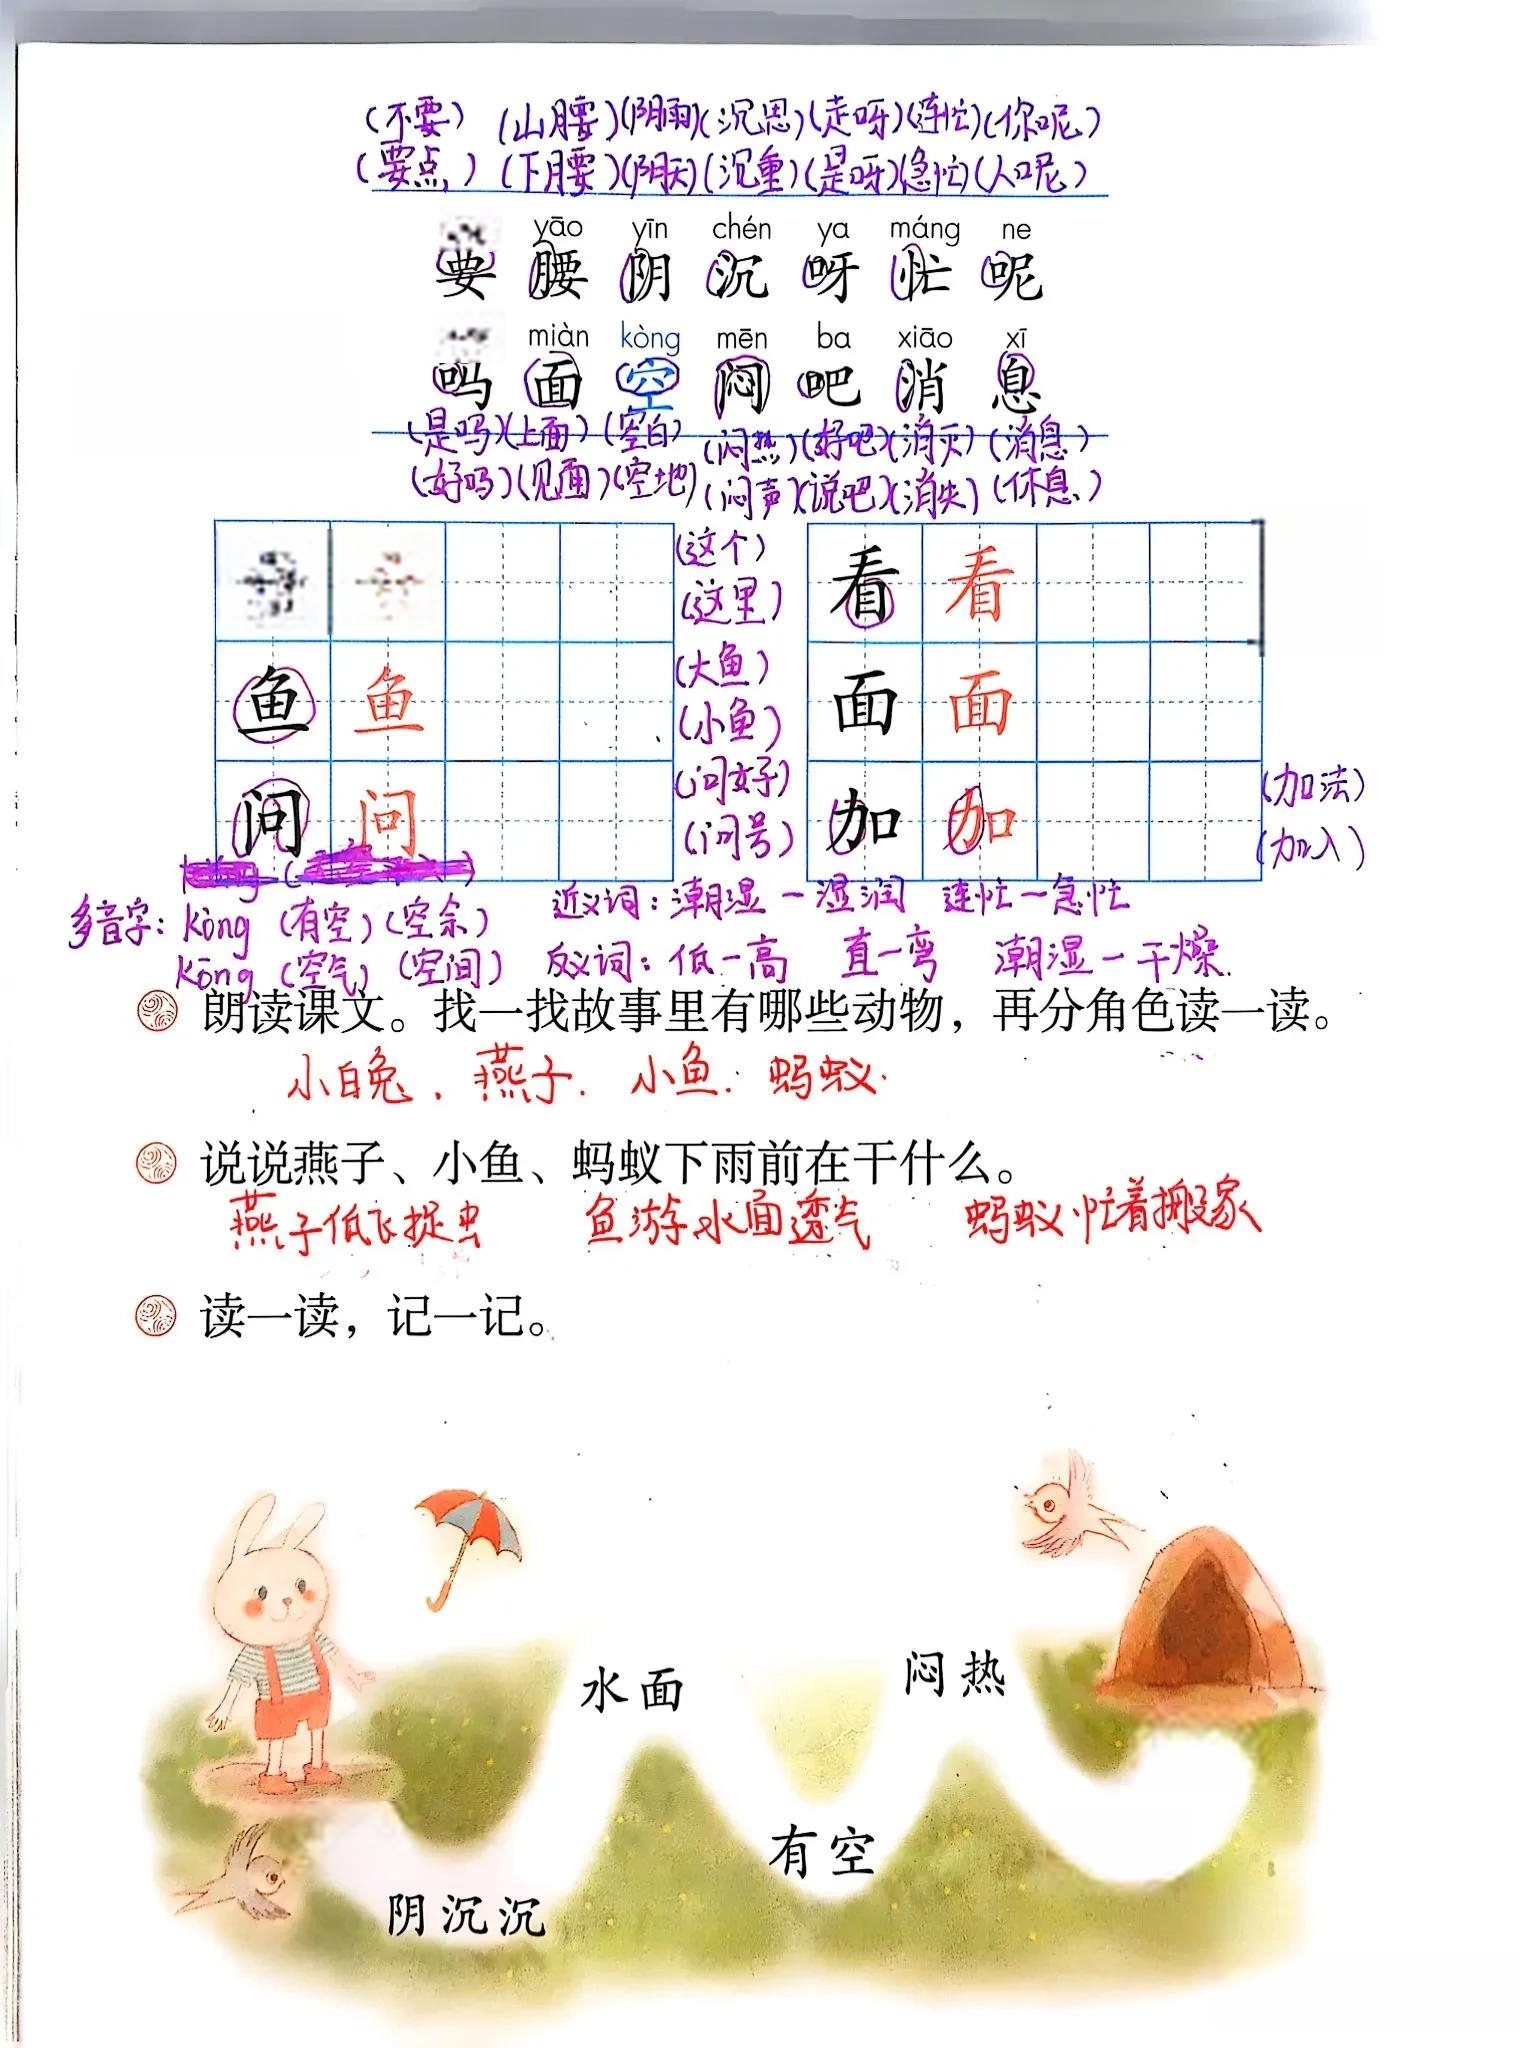 (不要) (山腰)(阴雨)(沉思)(走呀)(连忙)(你呢)
(要点) (下腰)(阴天)(沉重)(是呀)(急忙)(人呢)
yāo yīn chén ya máng ne
要 腰 阴 沉 呀 忙 呢
miàn kòng mēn ba xiāo xī
吗 面 空 闷 吧 消 息
(是吗)(上面)(空白)(闷热)(好吧)(消灭)(消息)
(好吗)(见面)(空地)(闷声)(说吧)(消失)(休息)
(这个)
(这里)
看 看
鱼 鱼 (大鱼)
(小鱼)
面 面
问 问 (问好)
(问号)
加 加 (加法)
(加入)
近义词：潮湿一湿润 连忙一急忙
多音字：kòng (有空)(空余)
kōng (空气)(空间) 反义词：低一高 直一弯 潮湿一干燥
朗读课文。找一找故事里有哪些动物，再分角色读一读。
小白兔．燕子．小鱼．蚂蚁．
说说燕子、小鱼、蚂蚁下雨前在干什么。
燕子低飞捉虫 鱼游水面透气 蚂蚁忙着搬家
读一读，记一记。
水面
闷热
有空
阴沉沉